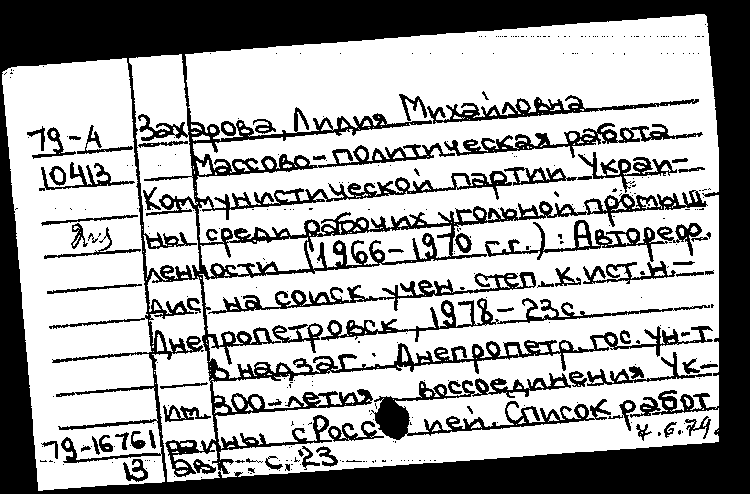 79-А Захарова, Лидия Михайловна
10413 Массово-политическая работа
Коммунистической партии Украи-
ны среди рабочих угольной промыш-
ленности (1966-1970 г.г.): Автореф.
дис. на соиск. учен. степ. к.ист.н.-
Днепропетровск, 1978-23с.
В надзаг.: Днепропетр. гос. ун-т
им. 300-летия воссоединения Ук-
79-16761 раины с Росс ией. Список работ
13 авт.: с. 23
4.6.79.